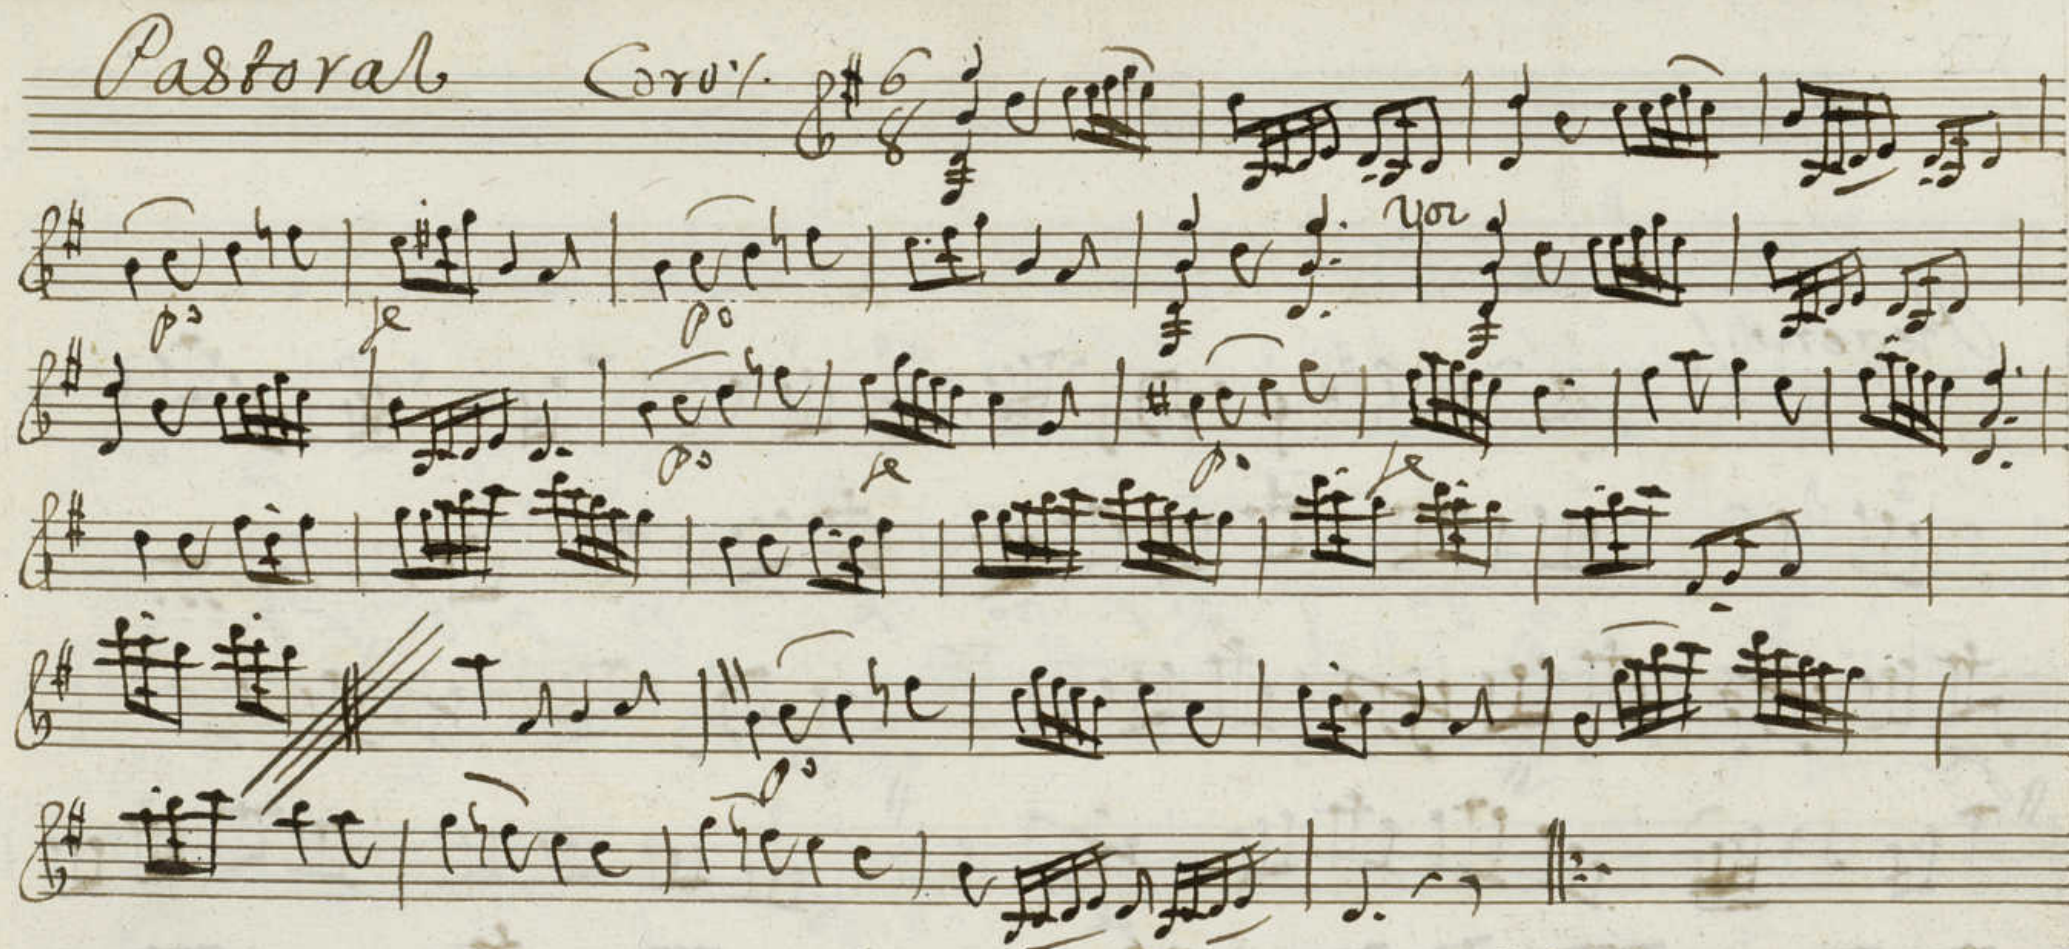 Pastoral Coro ٪
6
8
voz
po fe po
po fe po fe
po